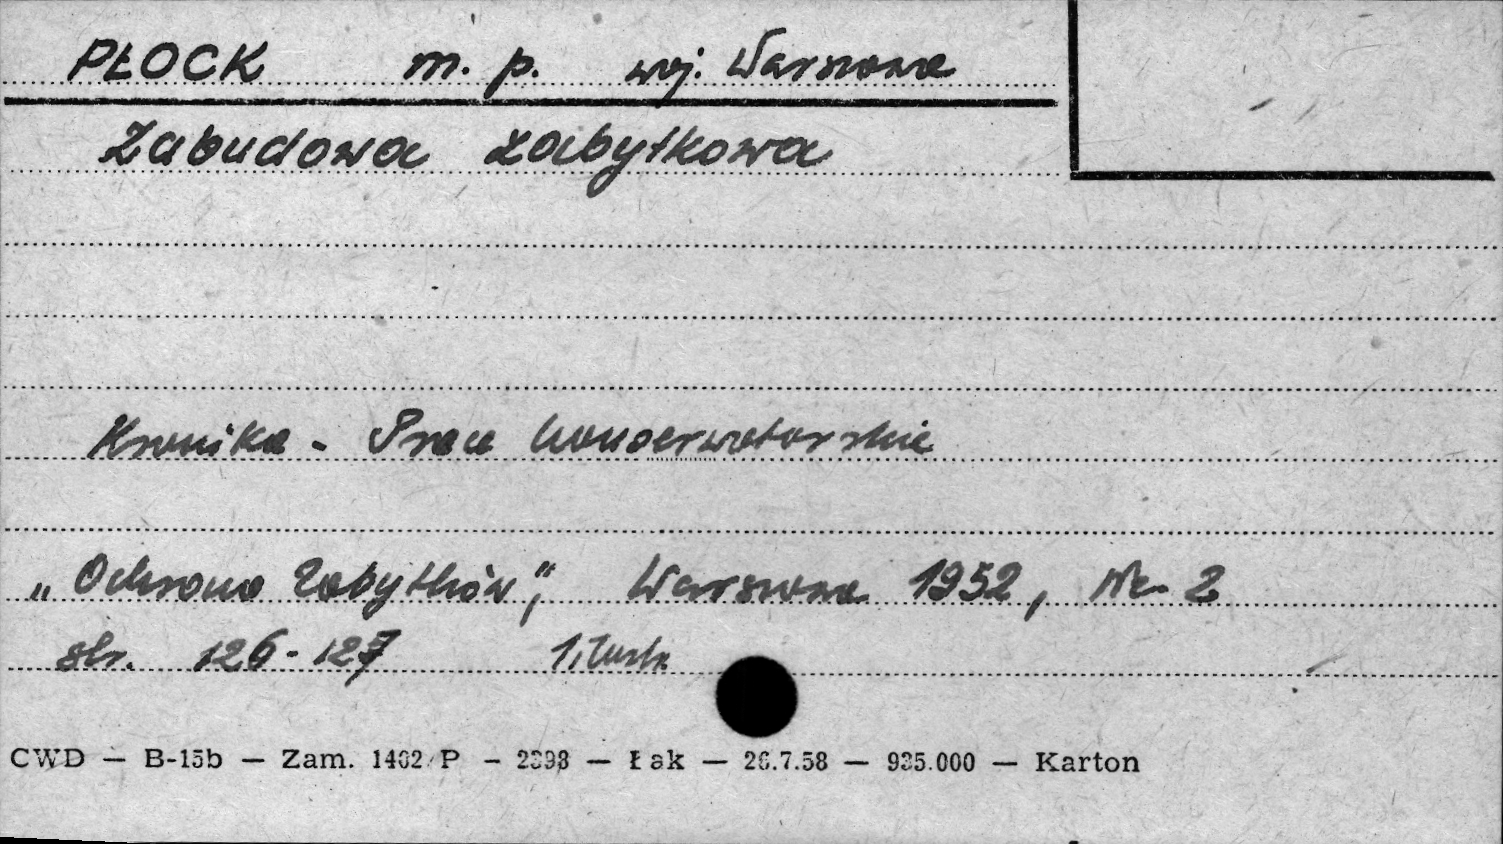 PŁOCK m. p. woj. Warszawa
Zabudowa zabytkowa
Kronika - Prace konserwatorskie
„Ochrona Zabytków”, Warszawa 1952, Nr 2
str. 126-127 1. ilustr.
CWD — B-15b — Zam. 1402/P — 2398 — Łak — 26.7.58 — 935.000 — Karton